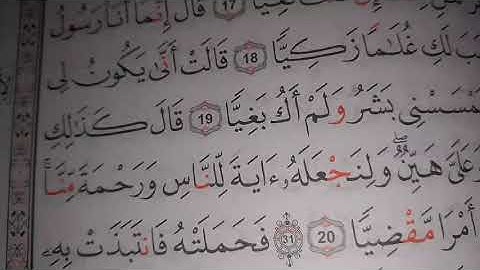 قَالَ إِنَّمَا أَنَا رَسُولُ 17
بَ لَكِ غُلَٰمًا زَكِيًّا 18 قَالَتْ أَنَّىٰ يَكُونُ لِى
يَمْسَسْنِى بَشَرٌ وَلَمْ أَكُ بَغِيًّا 19 قَالَ كَذَٰلِكِ
عَلَىَّ هَيِّنٌۖ وَلِنَجْعَلَهُۥ ءَايَةً لِّلنَّاسِ وَرَحْمَةً مِّنَّاۚ
أَمْرًا مَّقْضِيًّا 20 31 فَحَمَلَتْهُ فَانتَبَذَتْ بِهِۦ